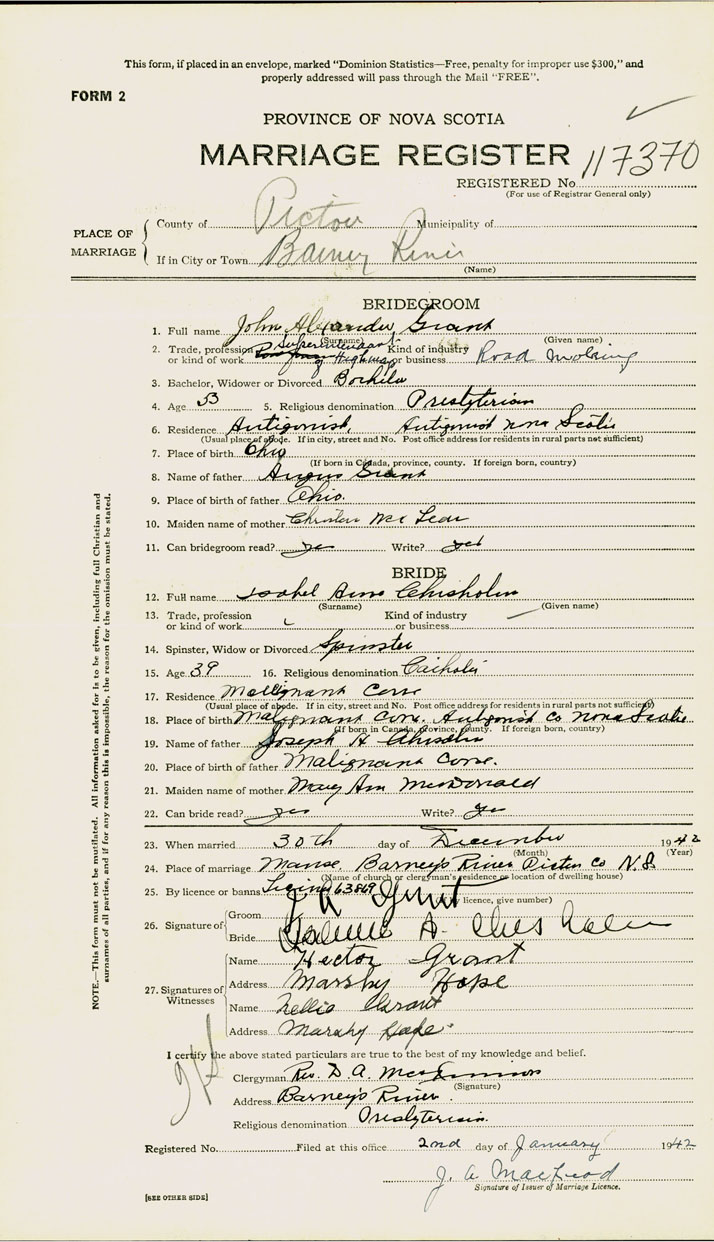 This form, if placed in an envelope, marked "Dominion Statistics—Free, penalty for improper use $300," and
properly addressed will pass through the Mail "FREE".
FORM 2
PROVINCE OF NOVA SCOTIA
MARRIAGE REGISTER 117370
REGISTERED No.
(For use of Registrar General only)
PLACE OF MARRIAGE
County of Pictou Municipality of
If in City or Town Barney River
(Name)
BRIDEGROOM
1. Full name John Alexander Grant
(Surname) (Given name)
2. Trade, profession or kind of work Superintendent of Highway Kind of industry or business Road
3. Bachelor, Widower or Divorced Bachelor
4. Age 53 5. Religious denomination Presbyterian
6. Residence Antigonish, Antigonish Nova Scotia
(Usual place of abode. If in city, street and No. Post office address for residents in rural parts not sufficient)
7. Place of birth Ohio
(If born in Canada, province, county. If foreign born, country)
8. Name of father Angus Grant
9. Place of birth of father Ohio.
10. Maiden name of mother McLean
11. Can bridegroom read? yes Write? yes
BRIDE
12. Full name Isobel Ann Chisholm
(Surname) (Given name)
13. Trade, profession or kind of work Kind of industry or business
14. Spinster, Widow or Divorced Spinster
15. Age 39 16. Religious denomination Catholic
17. Residence Malignant Cove
(Usual place of abode. If in city, street and No. Post office address for residents in rural parts not sufficient)
18. Place of birth Malignant Cove. Antigonish Co Nova Scotia
(If born in Canada, Province, county. If foreign born, country)
19. Name of father Joseph H Chisholm
20. Place of birth of father Malignant Cove.
21. Maiden name of mother Mary Ann McDonald
22. Can bride read? yes Write? yes
23. When married 30th day of December 1942
(Month) (Year)
24. Place of marriage Manse, Barney's River Pictou Co N.S.
(Name of church or clergyman's residence or location of dwelling house)
25. By licence or banns License 63869
(By licence, give number)
26. Signature of
Groom J A Grant
Bride A. Chisholm
27. Signatures of Witnesses
Name Hector Grant
Address Marshy Hope
Name Nellie Grant
Address Marshy Hope
I certify the above stated particulars are true to the best of my knowledge and belief.
Clergyman Rev. D. A. MacKinnon
(Signature)
Address Barney's River.
Religious denomination Presbyterian.
Registered No. Filed at this office 2nd day of January 1942
J. A. MacLeod
Signature of Issuer of Marriage Licence.
[SEE OTHER SIDE]
NOTE.—This form must not be mutilated. All information asked for is to be given, including full Christian and
surnames of all parties, and if for any reason this is impossible, the reason for the omission must be stated.